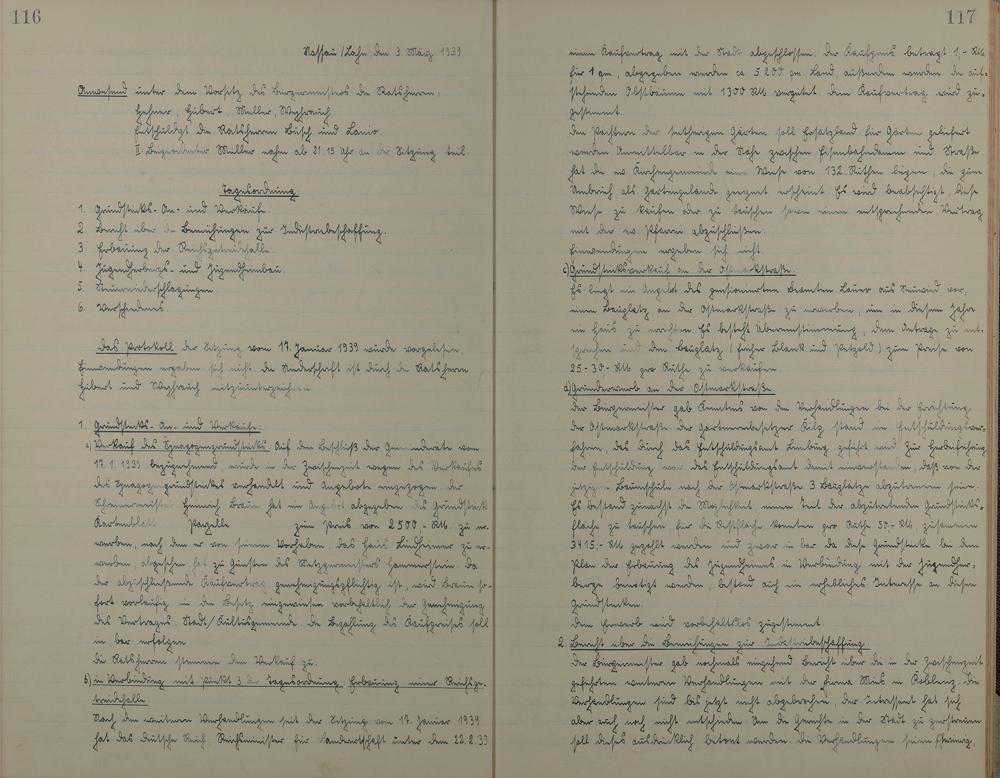 116
Nassau/Lahn, den 3. März 1939
Anwesend unter dem Vorsitz des Bürgermeisters die Ratsherren:
Hubert, Müller, Weyhreuch
Entschuldigt die Ratsherren Busch und
II. Beigeordneter Müller nahm ab 21,15 Uhr an der Sitzung teil.
Tagesordnung:
1. Grundstücks-An- und Verkäufe.
2. Bericht über die Bemühungen zur Industriebeschaffung.
3. Erbauung der Reichsgetreidehalle.
4. Jugendherbergs- und Jugendheimbau.
5. Steuerniederschlagungen
6. Verschiedenes.
Das Protokoll der Sitzung vom 17. Januar 1939 wurde vorgelesen,
Einwendungen ergeben sich nicht. Die Niederschrift ist durch die Ratsherren
Hubert und Weyhreuch mitzuunterzeichnen.
1. Grundstücks-An- und Verkäufe:
a) Verkauf des Synagogengrundstücks. Auf den Beschluß der Gemeinderäte vom
17.1.1939 bezugnehmend, wurde in der Zwischenzeit wegen des Verkaufes
des Synagogengrundstückes verhandelt und Angebote eingezogen. Der
Schreinermeister Heinrich Braun hat ein Angebot abgegeben das Grundstück
Kartenblatt Parzelle zum Preis von 2500,- RM. zu er-
werben, nach dem er von seinem Vorhaben, das Haus Lindheimer zu er-
werben, abgesehen hat zu Gunsten des Metzgermeisters Hammerstein. Da
der abzuschließende Kaufvertrag genehmigungspflichtig ist, wird Braun so-
fort vorläufig in den Besitz eingewiesen vorbehaltlich der Genehmigung
des Vertrages Stadt/Kultusgemeinde. Die Bezahlung des Kaufpreises soll
in bar erfolgen.
Die Ratsherren stimmen dem Verkauf zu.
b) in Verbindung mit Punkt 3 der Tagesordnung. Erbauung einer Reichsge-
treidehalle.
Nach den weiteren Verhandlungen seit der Sitzung vom 17. Januar 1939
hat das Deutsche Reich, Reichsminister für Landwirtschaft unter dem 22.2.39
117
einen Kaufvertrag mit der Stadt abgeschlossen. Der Kaufpreis beträgt 1,- RM
für 1 qm, abgegeben werden ca 5200 qm Land, außerdem werden die auf-
stehenden Obstbäume mit 1300 RM vergütet. Dem Kaufvertrag wird zu-
gestimmt.
Den Pächtern der seitherigen Gärten soll Ersatzland für Gärten geliefert
werden. Unmittelbar in der Nähe zwischen Eisenbahndamm und Straße
hat die ev. Kirchengemeinde eine Wiese von 132 Ruthen liegen, die zum
Umbruch als Gartengelände geeignet erscheint. Es wird beabsichtigt, diese
Wiese zu kaufen oder zu tauschen sowie einen entsprechenden Vertrag
mit der ev. Pfarrei abzuschließen.
Einwendungen ergeben sich nicht.
c) Grundstücksverkauf an der Ostmarkstraße.
Es liegt ein Angebot des pensionierten Beamten Lauer aus Neuwied vor,
einen Bauplatz an der Ostmarkstraße zu erwerben, um in diesem Jahre
ein Haus zu errichten. Es besteht Übereinstimmung, dem Antrage zu ent-
sprechen und den Bauplatz (früher Blank und Petzold) zum Preise von
25-30,- RM pro Ruthe zu verkaufen.
d) Grunderwerb an der Ostmarkstraße.
Der Bürgermeister gab Kenntnis von den Verhandlungen bei der Errichtung
der Ostmarkstraße der Gärtnereibesitzer Kulz stand im Entschuldungsver-
fahren, das durch das Entschuldungsamt Limburg geführt wird. Zur Herbeiführung
der Entschuldung war das Entschuldungsamt damit einverstanden, daß von der
jetzigen Baumschule nach der Ostmarkstraße 3 Bauplätze abzutrennen seien.
Es bestand zunächst die Möglichkeit, einen Teil der abzutretenden Grundstücks-
fläche zu tauschen für die Restfläche konnten pro Ruthe 50,- RM, zusammen
3415,- RM gezahlt werden und zwar in bar. Da diese Grundstücke bei dem
Plan der Erbauung des Jugendheimes in Verbindung mit der Jugendher-
berge benötigt werden, bestand auch ein erhebliches Interesse an diesen
Grundstücken.
Dem Erwerb wird vorbehaltlos zugestimmt.
2. Bericht über die Bemühungen zur Industriebeschaffung.
Der Bürgermeister gab nochmals eingehend Bericht über die in der Zwischenzeit
geführten weiteren Verhandlungen mit der Firma Mies in Koblenz. Die
Verhandlungen sind bis jetzt nicht abgebrochen, der Interessent hat sich
aber auch noch nicht entschieden. Um die Gerüchte in der Stadt zu zerstreuen
soll dieses ausdrücklich betont werden. Die Verhandlungen seien schwierig,